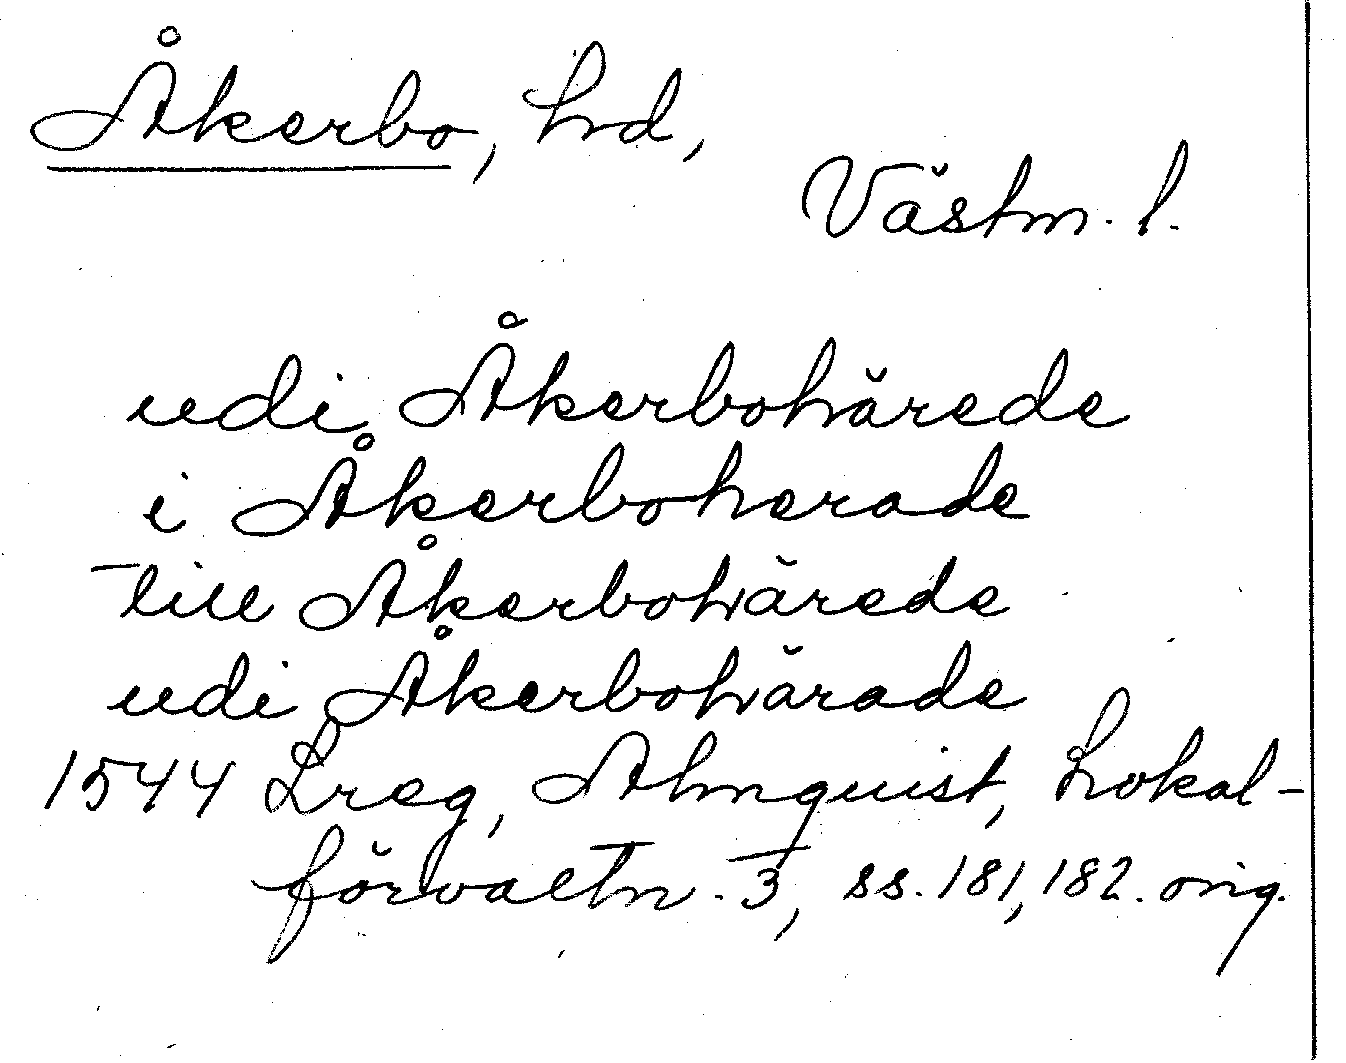 Åkerbo, hd,
Västm. l.
udi Åkerbohärede
i Åkerboherade
till Åkerbohärede
udi Åkerbohärade
1544 Lreg, Almquist, Lokal-
förvaltn. 3, ss. 181, 182. orig.